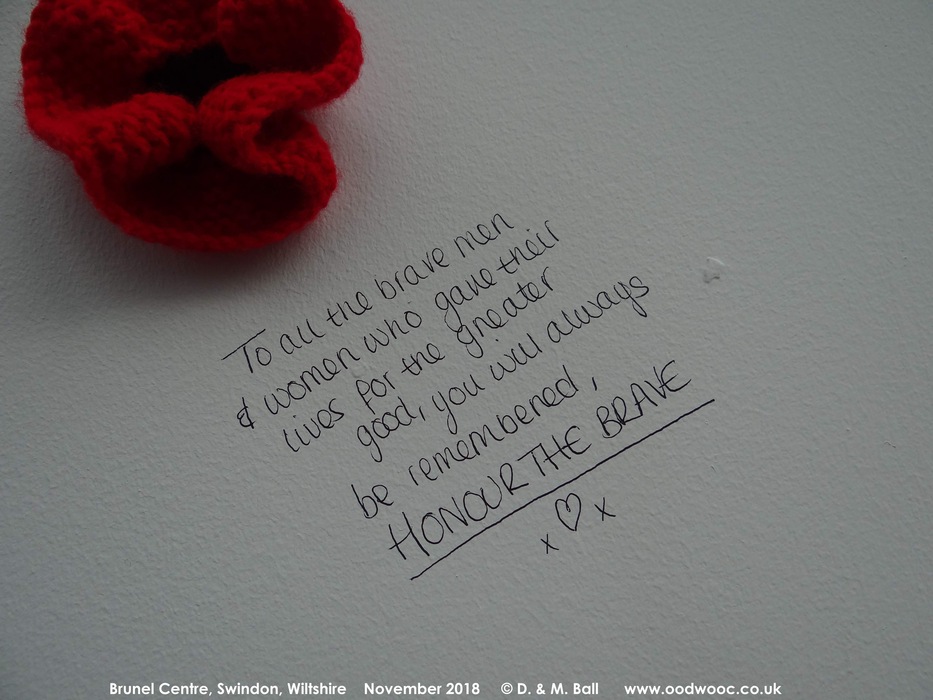 To all the brave men
& women who gave their
lives for the greater
good, you will always
be remembered,
HONOUR THE BRAVE
x ♡ x
Brunel Centre, Swindon, Wiltshire November 2018 © D. & M. Ball www.oodwooc.co.uk